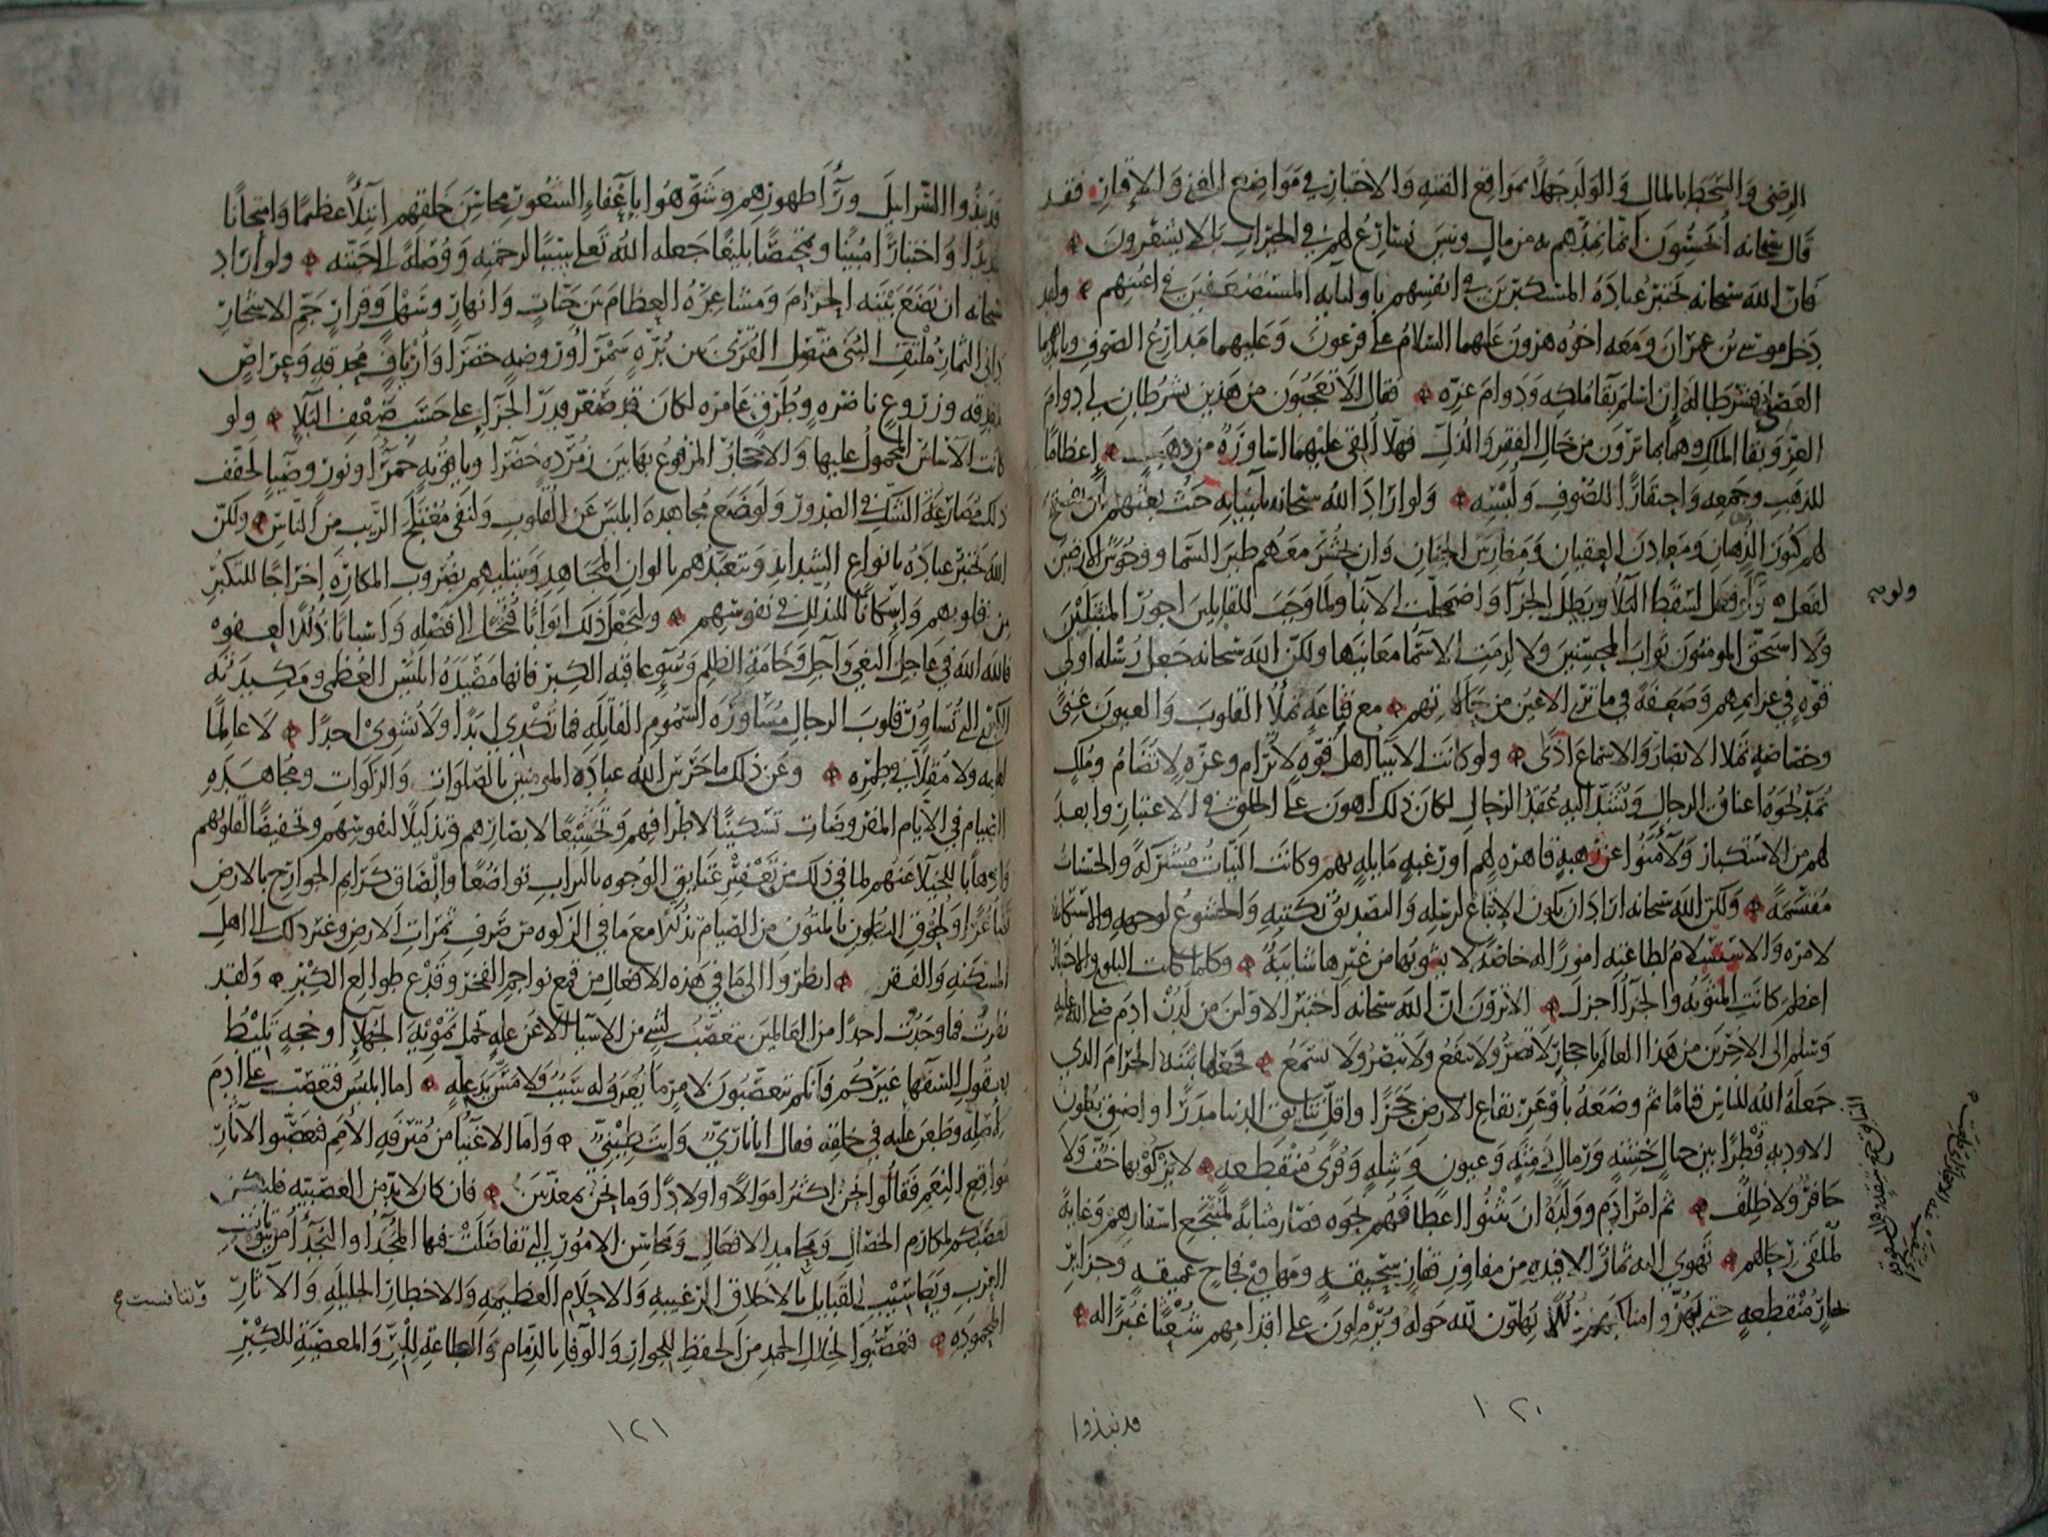 الرضى والسخط بالمال والولد جهلا بمواقع الفتنه والاختبار في مواضع الغنى والاقتار فقد
قال سبحانه أيحسبون أنما نمدهم به من مال وبنين نسارع لهم في الخيرات بل لا يشعرون
فان الله سبحانه يختبر عباده المستكبرين في انفسهم باوليايه المستضعفين في اعينهم ولقد
دخل موسى بن عمران ومعه اخوه هرون عليهما السلام على فرعون وعليهما مدارع الصوف وبايديهما
العصي فشرطا له إن اسلم بقا ملكه ودوام عزه فقال الا تعجبون من هذين يشرطان لي دوام
العز وبقا الملك وهما بما ترون من حال الفقر والذل فهلا ألقي عليهما اساورة من ذهب إعظاما
للذهب وجمعه واحتقارا للصوف ولبسه ولو اراد الله سبحانه بانبيايه حيث بعثهم ان يفتح
لهم كنوز الذهبان ومعادن العقيان ومغارس الجنان وان يحشر معهم طير السما ووحوش الارض
لفعل ولو فعل لسقط البلا وبطل الجزا واضمحلت الانبا ولما وجب للقابلين اجور المبتلين
ولا استحق المومنون ثواب المحسنين ولا لزمت الاسما معانيها ولكن الله سبحانه جعل رسله اولى
قوه في عزايمهم وضعفة في ما ترى الاعين من حالاتهم مع قناعه تملأ القلوب والعيون غنى
وخصاصه تملا الابصار والاسماع اذى ولو كانت الانبيا اهل قوه لا ترام وعزه لا تضام وملك
تمد نحوه اعناق الرجال وتشد اليه عقد الرحال لكان ذلك اهون على الخلق في الاعتبار وابعد
لهم من الاستكبار ولآمنوا عن رهبه قاهره لهم او رغبه مايله بهم وكانت النيات مشتركة والحسنات
مقتسمة ولكن الله سبحانه اراد ان يكون الاتباع لرسله والتصديق بكتبه والخشوع لوجهه والاستكانة
لامره والاستسلام لطاعته امورا له خاصة لا يشوبها من غيرها شايبة وكلما كانت البلوى والاختبار
اعظم كانت المثوبه والجزا اجزل الا ترون ان الله سبحانه اختبر الاولين من لدن ادم صلى الله عليه
وسلم الى الاخرين من هذا العالم باحجار لا تضر ولا تنفع ولا تبصر ولا تسمع فجعلها بيته الحرام الذي
جعله الله للناس قياما ثم وضعه باوعر بقاع الارض حجرا واقل نتايق الدنيا مدرا واضيق بطون
الاوديه قطرا بين جبال خشنه ورمال دمثه وعيون وشله وقرى منقطعه لا يزكو بها خف ولا
حافر ولا ظلف ثم امر ادم وولده ان يثنوا اعطافهم نحوه فصار مثابة لمنتجع اسفارهم وغاية
لملقى رحالهم تهوي اليه ثمار الافيده من مفاوز قفار سحيقه ومهاوي فجاج عميقه وجزاير
بحار منقطعه حتى يهزوا مناكبهم ذللا يهلون لله حوله ويرملون على اقدامهم شعثا غبرا له
ولو
قد نبذوا
١٢٠
قد نبذوا السرابيل ورآ ظهورهم وشوهوا باعفاء الشعور محاسن خلقهم ابتلآ عظيما وامتحانا
شديدا واختبارا مبينا وتمحيصا بليغا جعله الله تعلى سببا لرحمته ووصلة الى جنته ولو اراد
سبحانه ان يضع بيته الحرام ومشاعره العظام بين جنات وانهار وسهل وقرار جم الاشجار
داني الثمار ملتف البنى متصل القرى بين بره سمرا وروضه خضرا وارياف محدقه وعراص
مغدقه وزروع ناضره وطرق عامره لكان قد صغر قدر الجزا على حسب ضعف البلا ولو
كانت الاساس المحمول عليها والاحجار المرفوع بها بين زمرده خضرا وياقوته حمرا ونور وضيا لخفف
ذلك مصارعة الشك في الصدور ولوضع مجاهده ابليس عن القلوب ولنفى معتلج الريب من الناس ولكن
الله يختبر عباده بانواع الشدايد ويتعبدهم بالوان المجاهد ويبتليهم بضروب المكاره إخراجا للتكبر
من قلوبهم واسكانا للتذلل في نفوسهم وليجعل ذلك ابوابا فتحا الى فضله واسبابا ذللا لعفوه
فالله الله في عاجل البغي وآجل وخامة الظلم وسوء عاقبه الكبر فانها مصيدة ابليس العظمى ومكيدته
الكبرى التي تساور قلوب الرجال مساورة السموم القاتله فما تكدي ابدا ولا تشوي احدا لا عالما
لعلمه ولا مقلا في طمره وعن ذلك ما حرس الله عباده المومنين بالصلوات والزكوات ومجاهدة
الصيام في الايام المفروضات تسكينا لاطرافهم وتخشيعا لابصارهم وتذليلا لنفوسهم وتخفيضا لقلوبهم
واذهابا للخيلا عنهم لما في ذلك من تعفير عتايق الوجوه بالتراب تواضعا والصاق كرايم الجوارح بالارض
تصاغرا ولحوق البطون بالمتون من الصيام تذللا مع ما في الزكوه من صرف ثمرات الارض وغير ذلك الى اهل
المسكنه والفقر انظروا الى ما في هذه الافعال من قمع نواجم الفخر وقدع طوالع الكبر ولقد
نظرت فما وجدت احدا من العالمين يتعصب لشي من الاشيا الا عن عله تحتمل تمويه الجهلا او حجه تليط
بعقول السفها غيركم فانكم تتعصبون لامر ما يعرف له سبب ولا مس يد عله اما ابليس فتعصب على ادم
لأصله وطعن عليه في خلقته فقال انا ناري وانت طيني واما الاغنيا من مترفه الامم فتعصبوا لاثار
مواقع النعم فقالوا نحن اكثر اموالا واولادا وما نحن بمعذبين فان كان لا بد من العصبيه فليكن
تعصبكم لمكارم الخصال ومحامد الافعال ومحاسن الامور التي تفاضلت فيها المجدا والنجدا من بيوتات
العرب ويعاسيب القبايل بالاخلاق الرغيبه والاحلام العظيمه والاخطار الجليله والآثار
المحموده فتعصبوا لخلال الحمد من الحفظ للجوار والوفا بالذمام والطاعة للبر والمعصية للكبر
١٢١